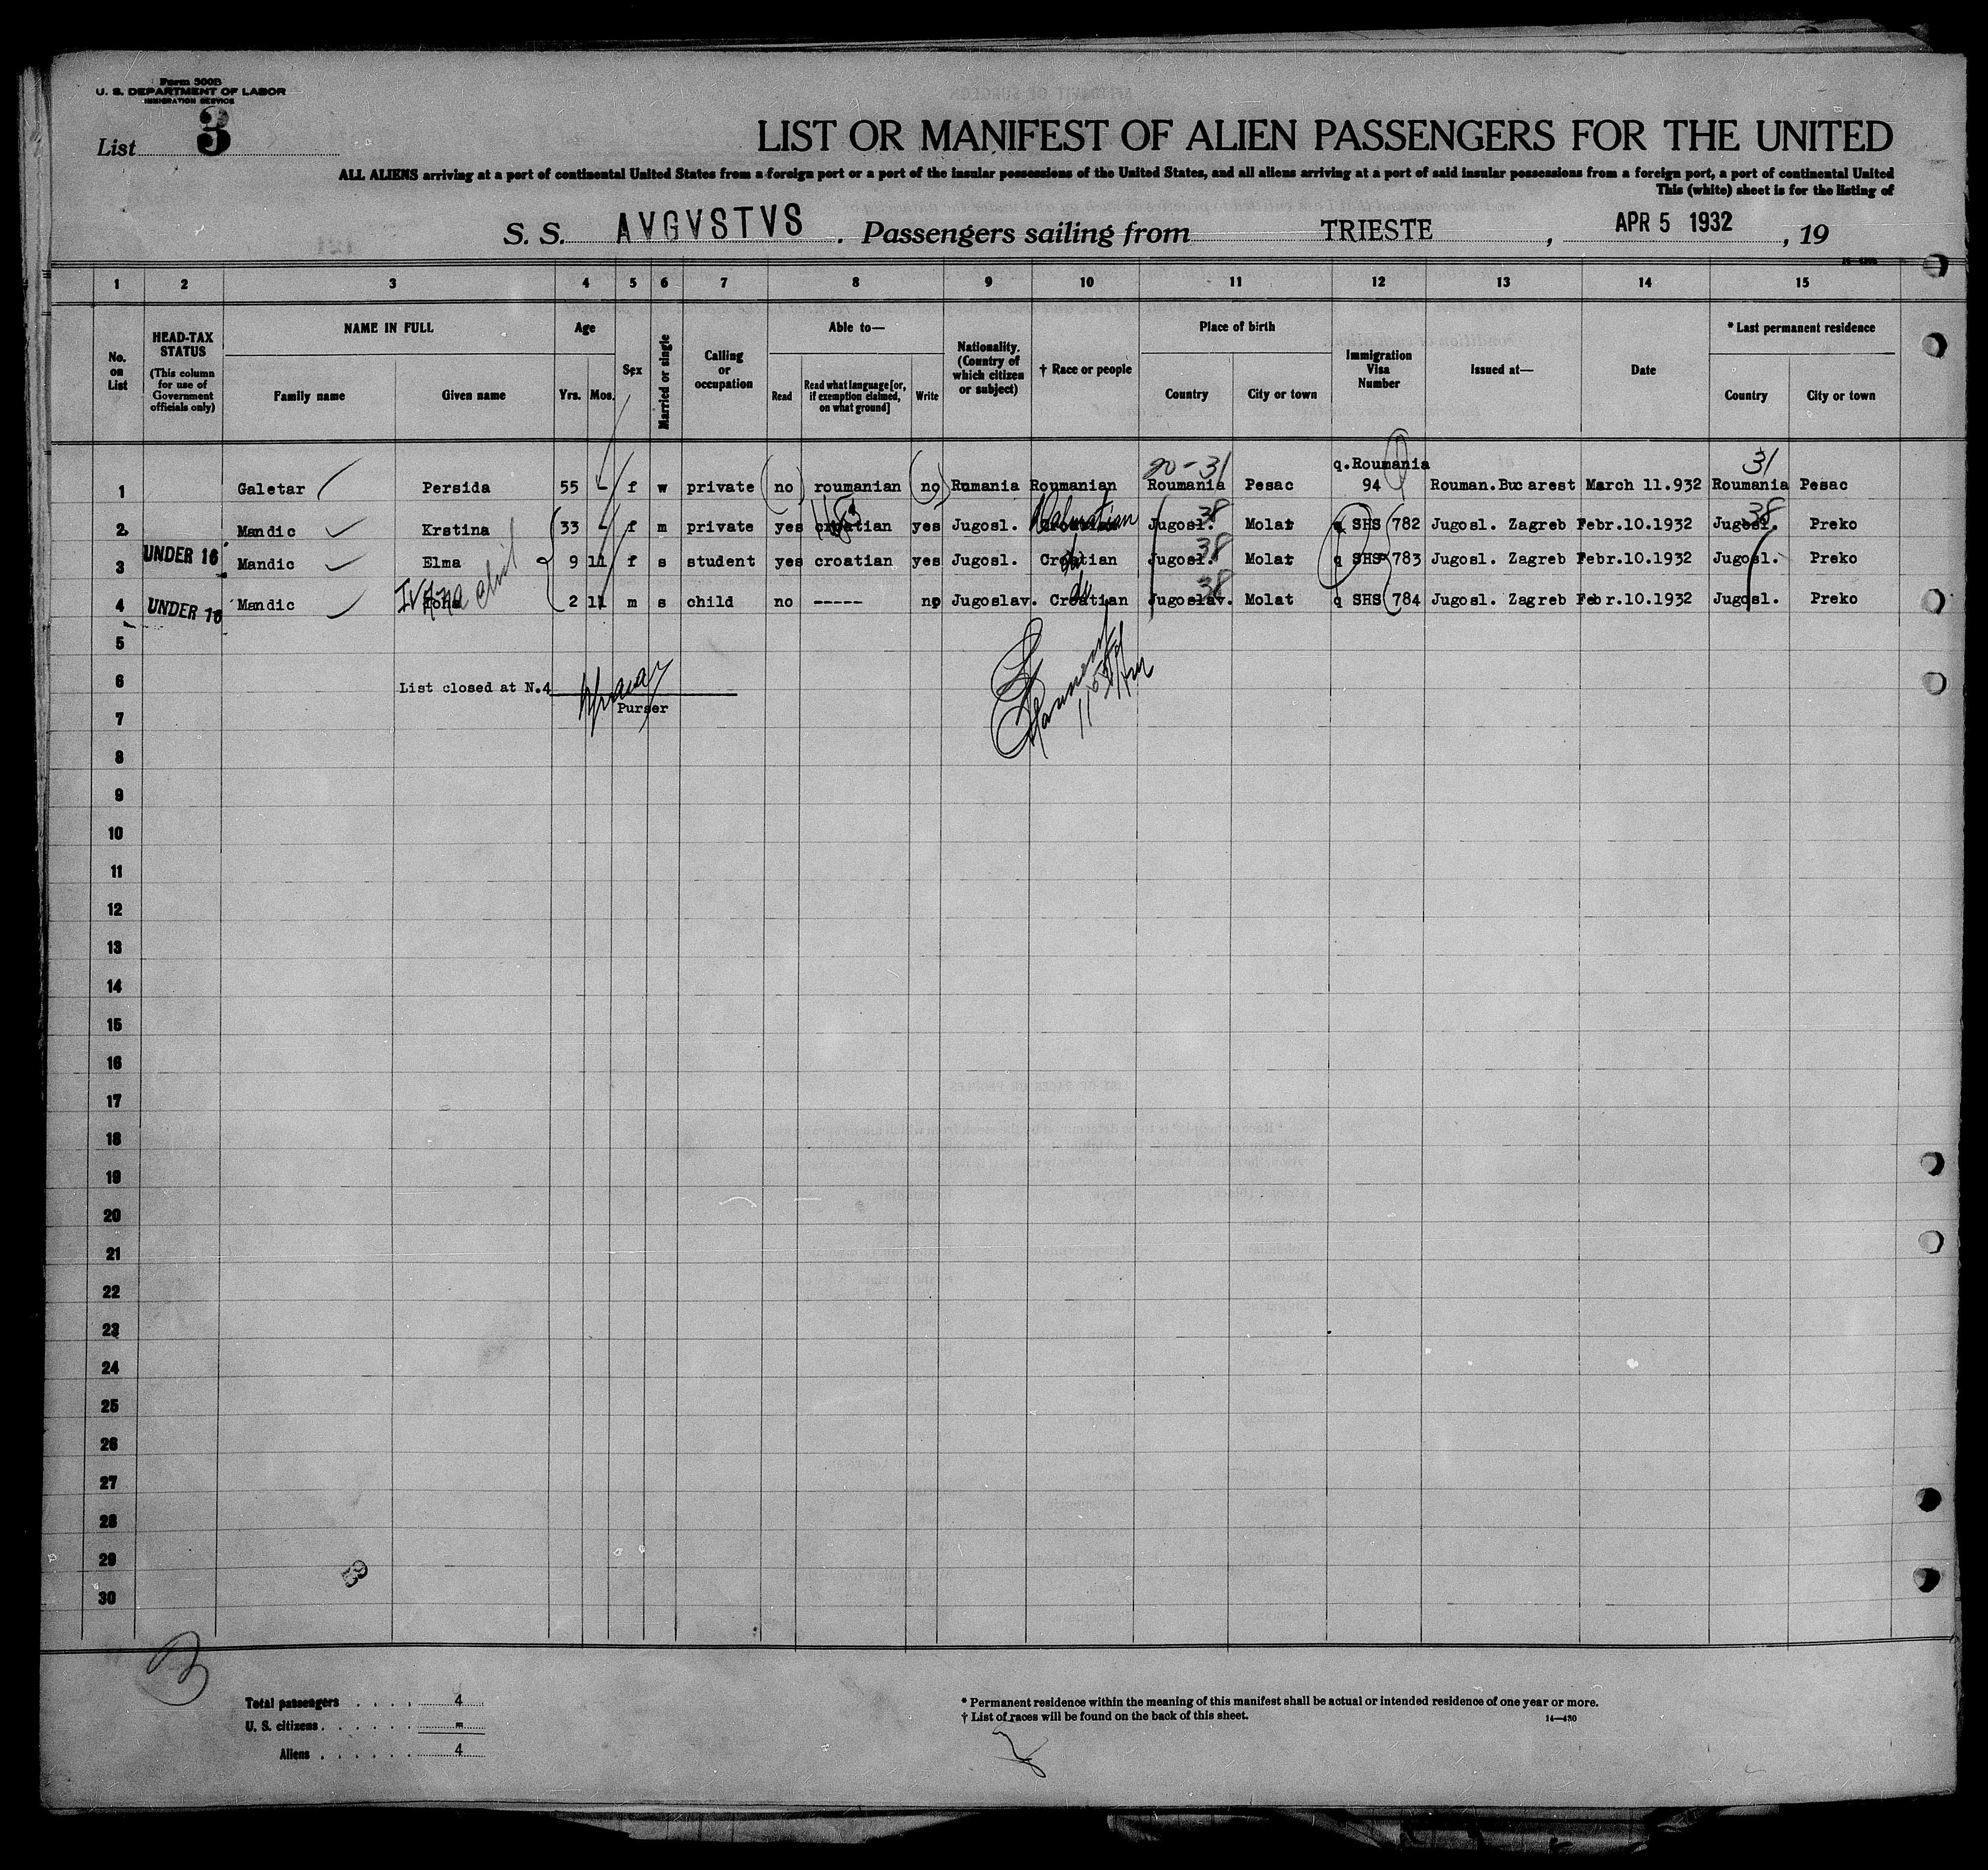 Form 500B
U. S. DEPARTMENT OF LABOR
IMMIGRATION SERVICE
List 3
LIST OR MANIFEST OF ALIEN PASSENGERS FOR THE UNITED
ALL ALIENS arriving at a port of continental United States from a foreign port or a port of the insular possessions of the United States, and all aliens arriving at a port of said insular possessions from a foreign port, a port of continental United
This (white) sheet is for the listing of
S. S. AVGVSTVS . Passengers sailing from TRIESTE , APR 5 1932 , 19
1 2 3 4 5 6 7 8 9 10 11 12 13 14 15
No. on List
HEAD-TAX STATUS
(This column for use of Government officials only)
NAME IN FULL
Family name Given name
Age
Yrs. Mos.
Sex
Married or single
Calling or occupation
Able to—
Read Read what language [or, if exemption claimed, on what ground] Write
Nationality. (Country of which citizen or subject)
† Race or people
Place of birth
Country City or town
Immigration Visa Number
Issued at—
Date
* Last permanent residence
Country City or town
20-31 q.Roumania 31
1 Galetar Persida 55 - f w private (no) roumanian (no) Rumania Roumanian Roumania Pesac 94 Rouman.Bucarest March 11.932 Roumania Pesac
2 Mandic Krstina 33 - f m private yes croatian yes Jugosl. Dalmatian Jugosl. 38 Molat q SHS 782 Jugosl. Zagreb Febr.10.1932 Jugosl. 38 Preko
3 UNDER 16 Mandic Elma 9 11 f s student yes croatian yes Jugosl. Croatian do Jugosl. 38 Molat q SHS 783 Jugosl. Zagreb Febr.10.1932 Jugosl. Preko
4 UNDER 16 Mandic 2 11 m s child no ----- no Jugoslav. Croatian do Jugoslav. 38 Molat q SHS 784 Jugosl. Zagreb Febr.10.1932 Jugosl. Preko
5
6
List closed at N.4
7 Purser
8
9
10
11
12
13
14
15
16
17
18
19
20
21
22
23
24
25
26
27
28
29
30
Total passengers . . . . 4
U. S. citizens . . . . . . -
Aliens . . . . . . 4
* Permanent residence within the meaning of this manifest shall be actual or intended residence of one year or more.
† List of races will be found on the back of this sheet.
14—430